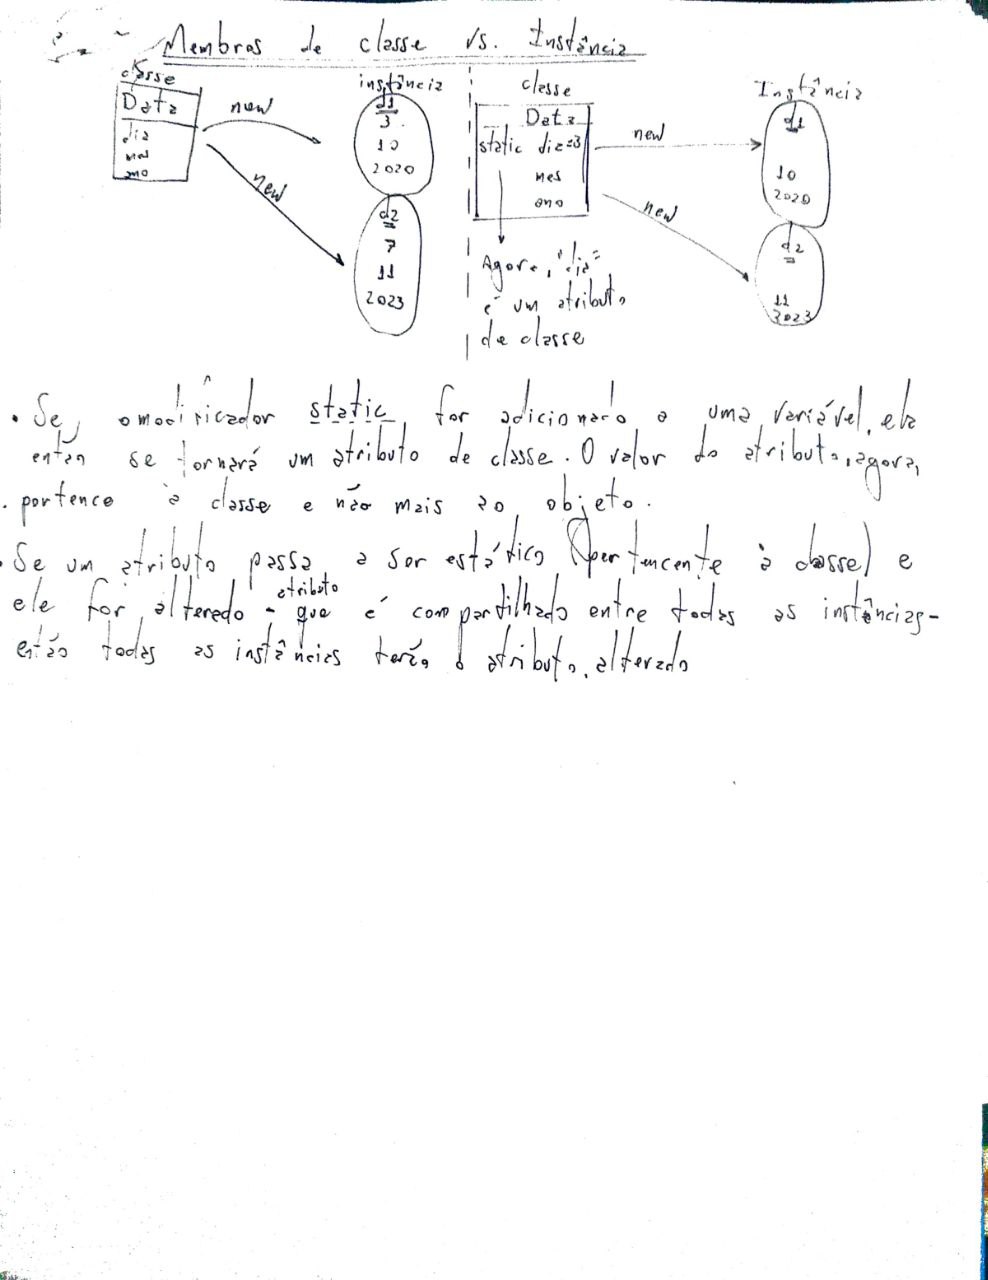 Membros de classe vs. Instância
classe
Data
dia
mes
ano
new
new
instância
d1
3
10
2020
d2
7
11
2023
classe
Data
static dia=3
mes
ano
new
new
Instância
d1
10
2020
d2
11
2023
Agora, "dia"
é um atributo
de classe
. Se, o modificador static for adicionado a uma variável, ela
então se tornará um atributo de classe. O valor do atributo, agora,
. pertence à classe e não mais ao objeto.
. Se um atributo passa a ser estático (pertencente à classe) e
ele for alterado - atributo que é compartilhado entre todas as instâncias -
então todas as instâncias terão o atributo alterado